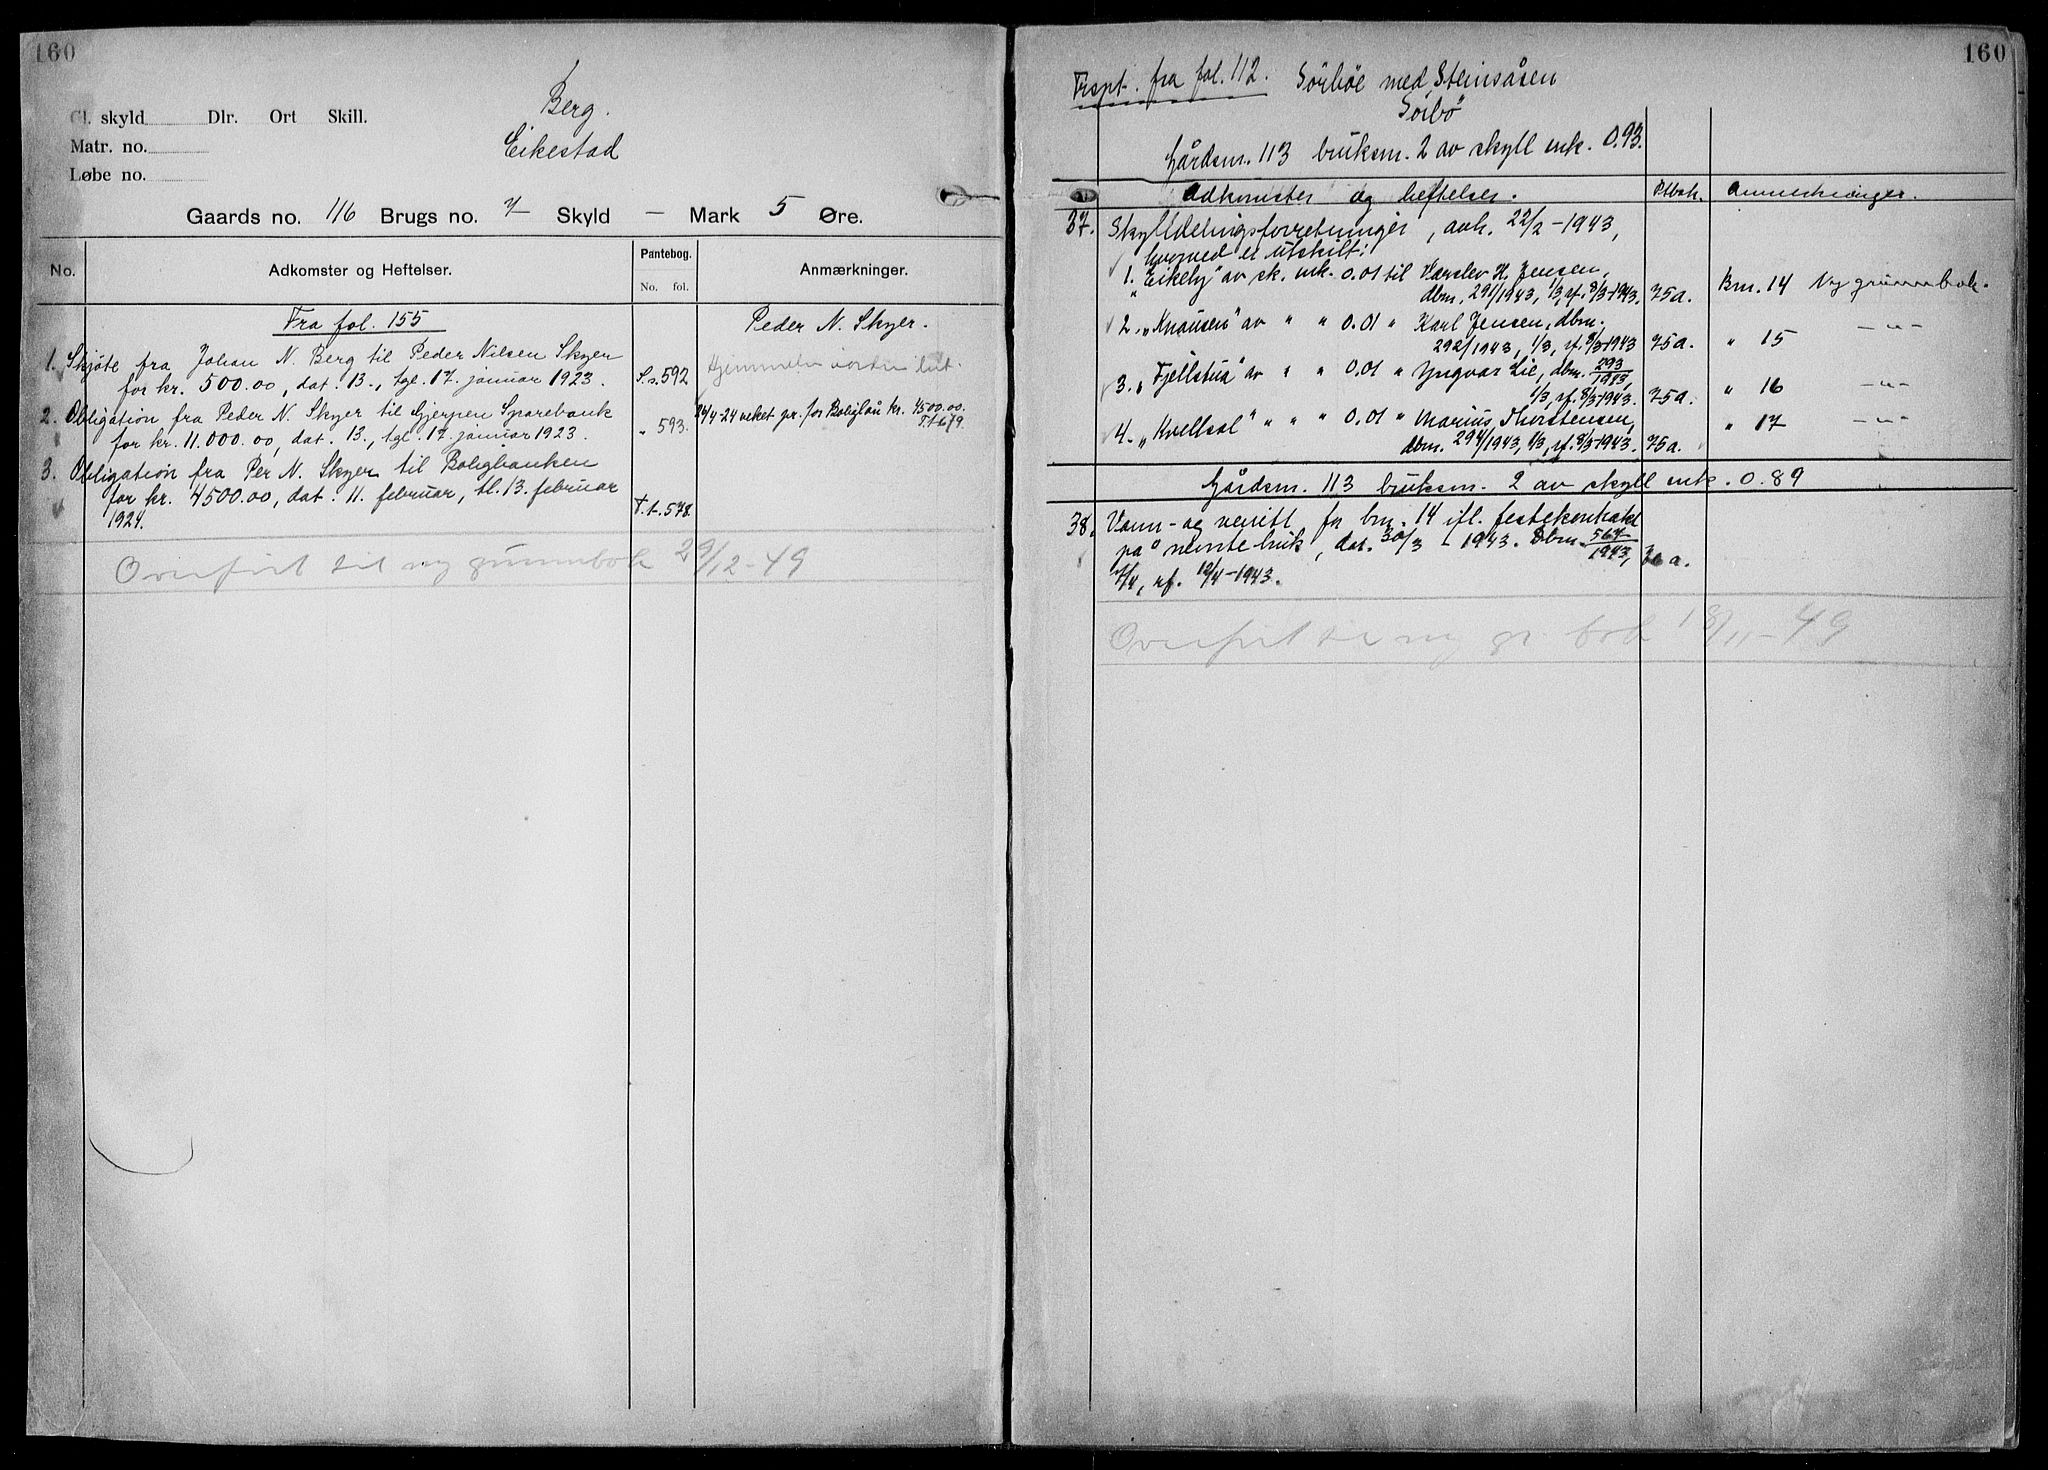 160
Berg.
Eikestad
Gl. skyld Dlr. Ort Skill.
Matr. no.
Løbe no.
Gaards no. 116 Brugs no. 7 Skyld - Mark 5 Øre.
No. Adkomster og Heftelser. Pantebog. No. fol. Anmærkninger.
Fra fol. 155
Peder N. Skyer.
1. Skjøte fra Johan N. Berg til Peder Nilsen Skyer
for kr. 500.00, dat. 13., tgl. 17. januar 1923. S.s. 592
2. Obligation fra Peder N. Skyer til Gjerpen Sparebank
for kr. 11.000.00, dat. 13., tgl. 17. januar 1923. " 593. 24/4-24 veket pr. for Boliglån kr. 4500.00. T.t. 679.
3. Obligation fra Per N. Skyer til Boligbanken
for kr. 4500.00, dat. 11. februar, tl. 13. februar
1924. T.t. 578.
Overført til ny grunnbok 29/12-49
160
Trspt. fra fol. 112. Sørbøe med Steinsåsen
Sørbö
Gårdsnr. 113 bruksnr. 2 av skyll mk. 0.93.
Adkomster og heftelser. Ptbok. Anmerkninger.
37. Skylldelingsforretninger, avh. 22/2-1943,
hvorved er utskilt:
1. "Eikely" av sk. mk. 0.01 til H. Jensen,
dbnr. 291/1943, 1/3, rf. 8/3-1943. 75a. Bnr. 14 Ny grunnbok.
2. "Knausen" av " " 0.01 " Karl Jensen, dbnr.
292/1943, 1/3, rf. 8/3-1943 75a. " 15 -"-
3. "Fjellstua" av " " 0.01 " Yngvar Lie, dbnr. 293/1943,
1/3, rf. 8/3-1943. 75a. " 16 -"-
4. "Kvellsol" " " " 0.01 " Marius Thorstensen,
dbnr. 294/1943, 1/3, rf. 8/3-1943. 75a. " 17 -"-
Gårdsnr. 113 bruksnr. 2 av skyll mk. 0.89
38. Vann- og veirett for bnr. 14 ifl. festekontrakt
på nevnte bruk, dat. 30/3-1943. Dbnr. 567/1943,
7/4, rf. 12/4-1943.
Overført til ny gr. bok 18/11-49